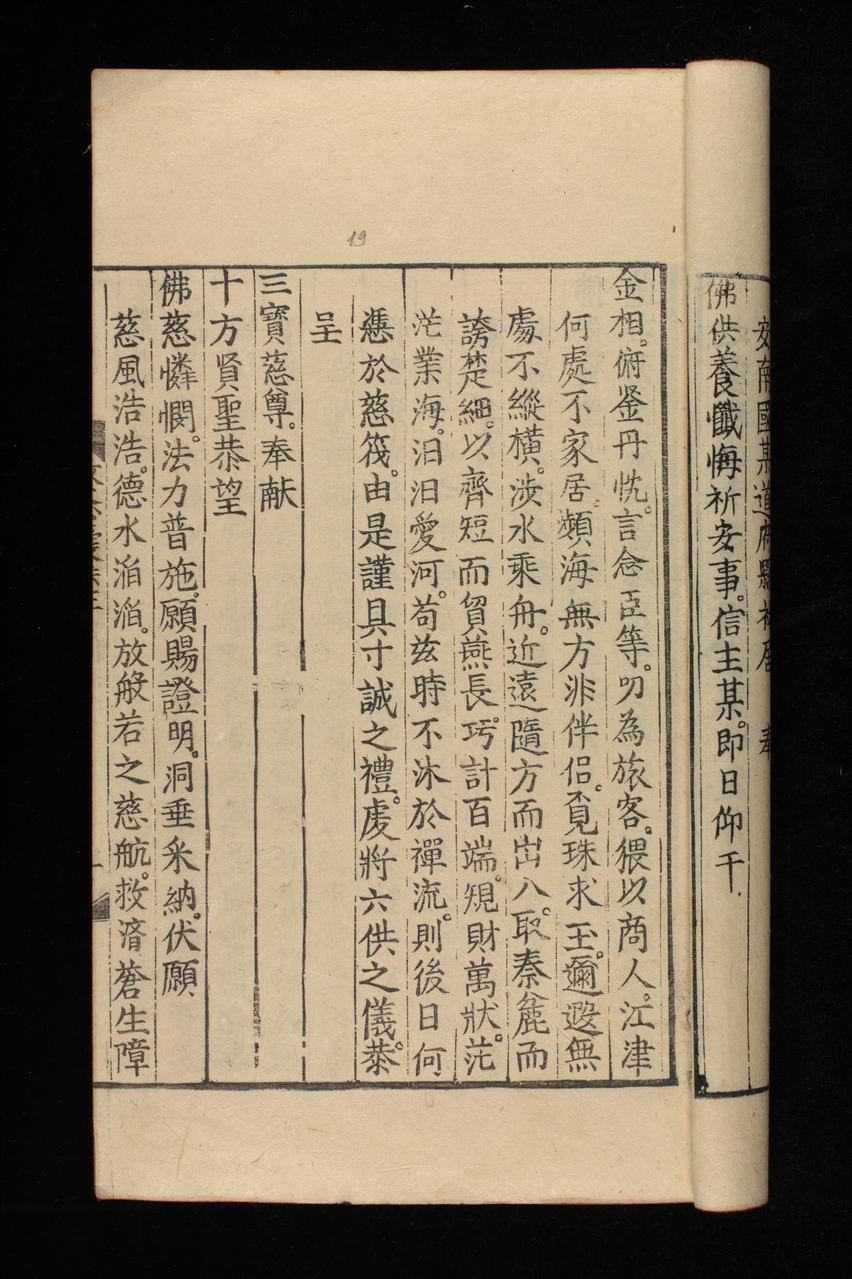 安南國某道府縣社居 奉
佛供養懺悔祈安事。信主某。即日仰干
金相。俯鉴丹忱。言念臣等。叨為旅客。猥以商人。江津
何處不家居。頻海無方非伴侣。覓珠求玉。邇遐無
處不縱橫。涉水乘舟。近遠隨方而出入。取秦麄而
誇楚細。以齊短而貿燕長。巧計百端。規財萬狀。茫
茫業海。汨汨愛河。苟兹時不沐於禪流。則後日何
憑於慈筏。由是謹具寸誠之禮。虔將六供之儀。恭
呈
三寶慈尊。奉献
十方賢聖恭望
佛慈憐憫。法力普施。願賜證明。洞垂采納。伏願
慈風浩浩。德水滔滔。放般若之慈航。救濟蒼生障
19